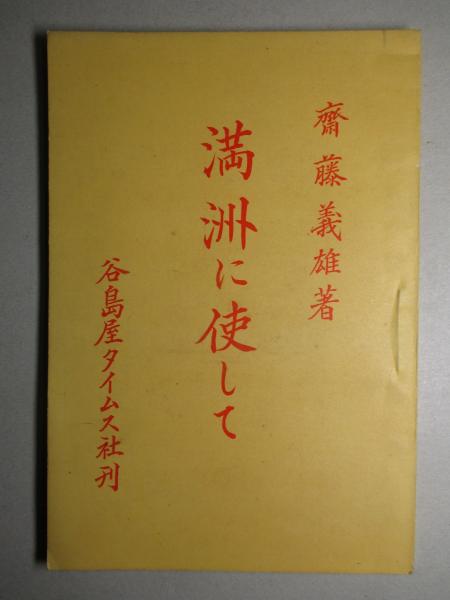 齋藤義雄著
満洲に使して
谷島屋タイムス社刊